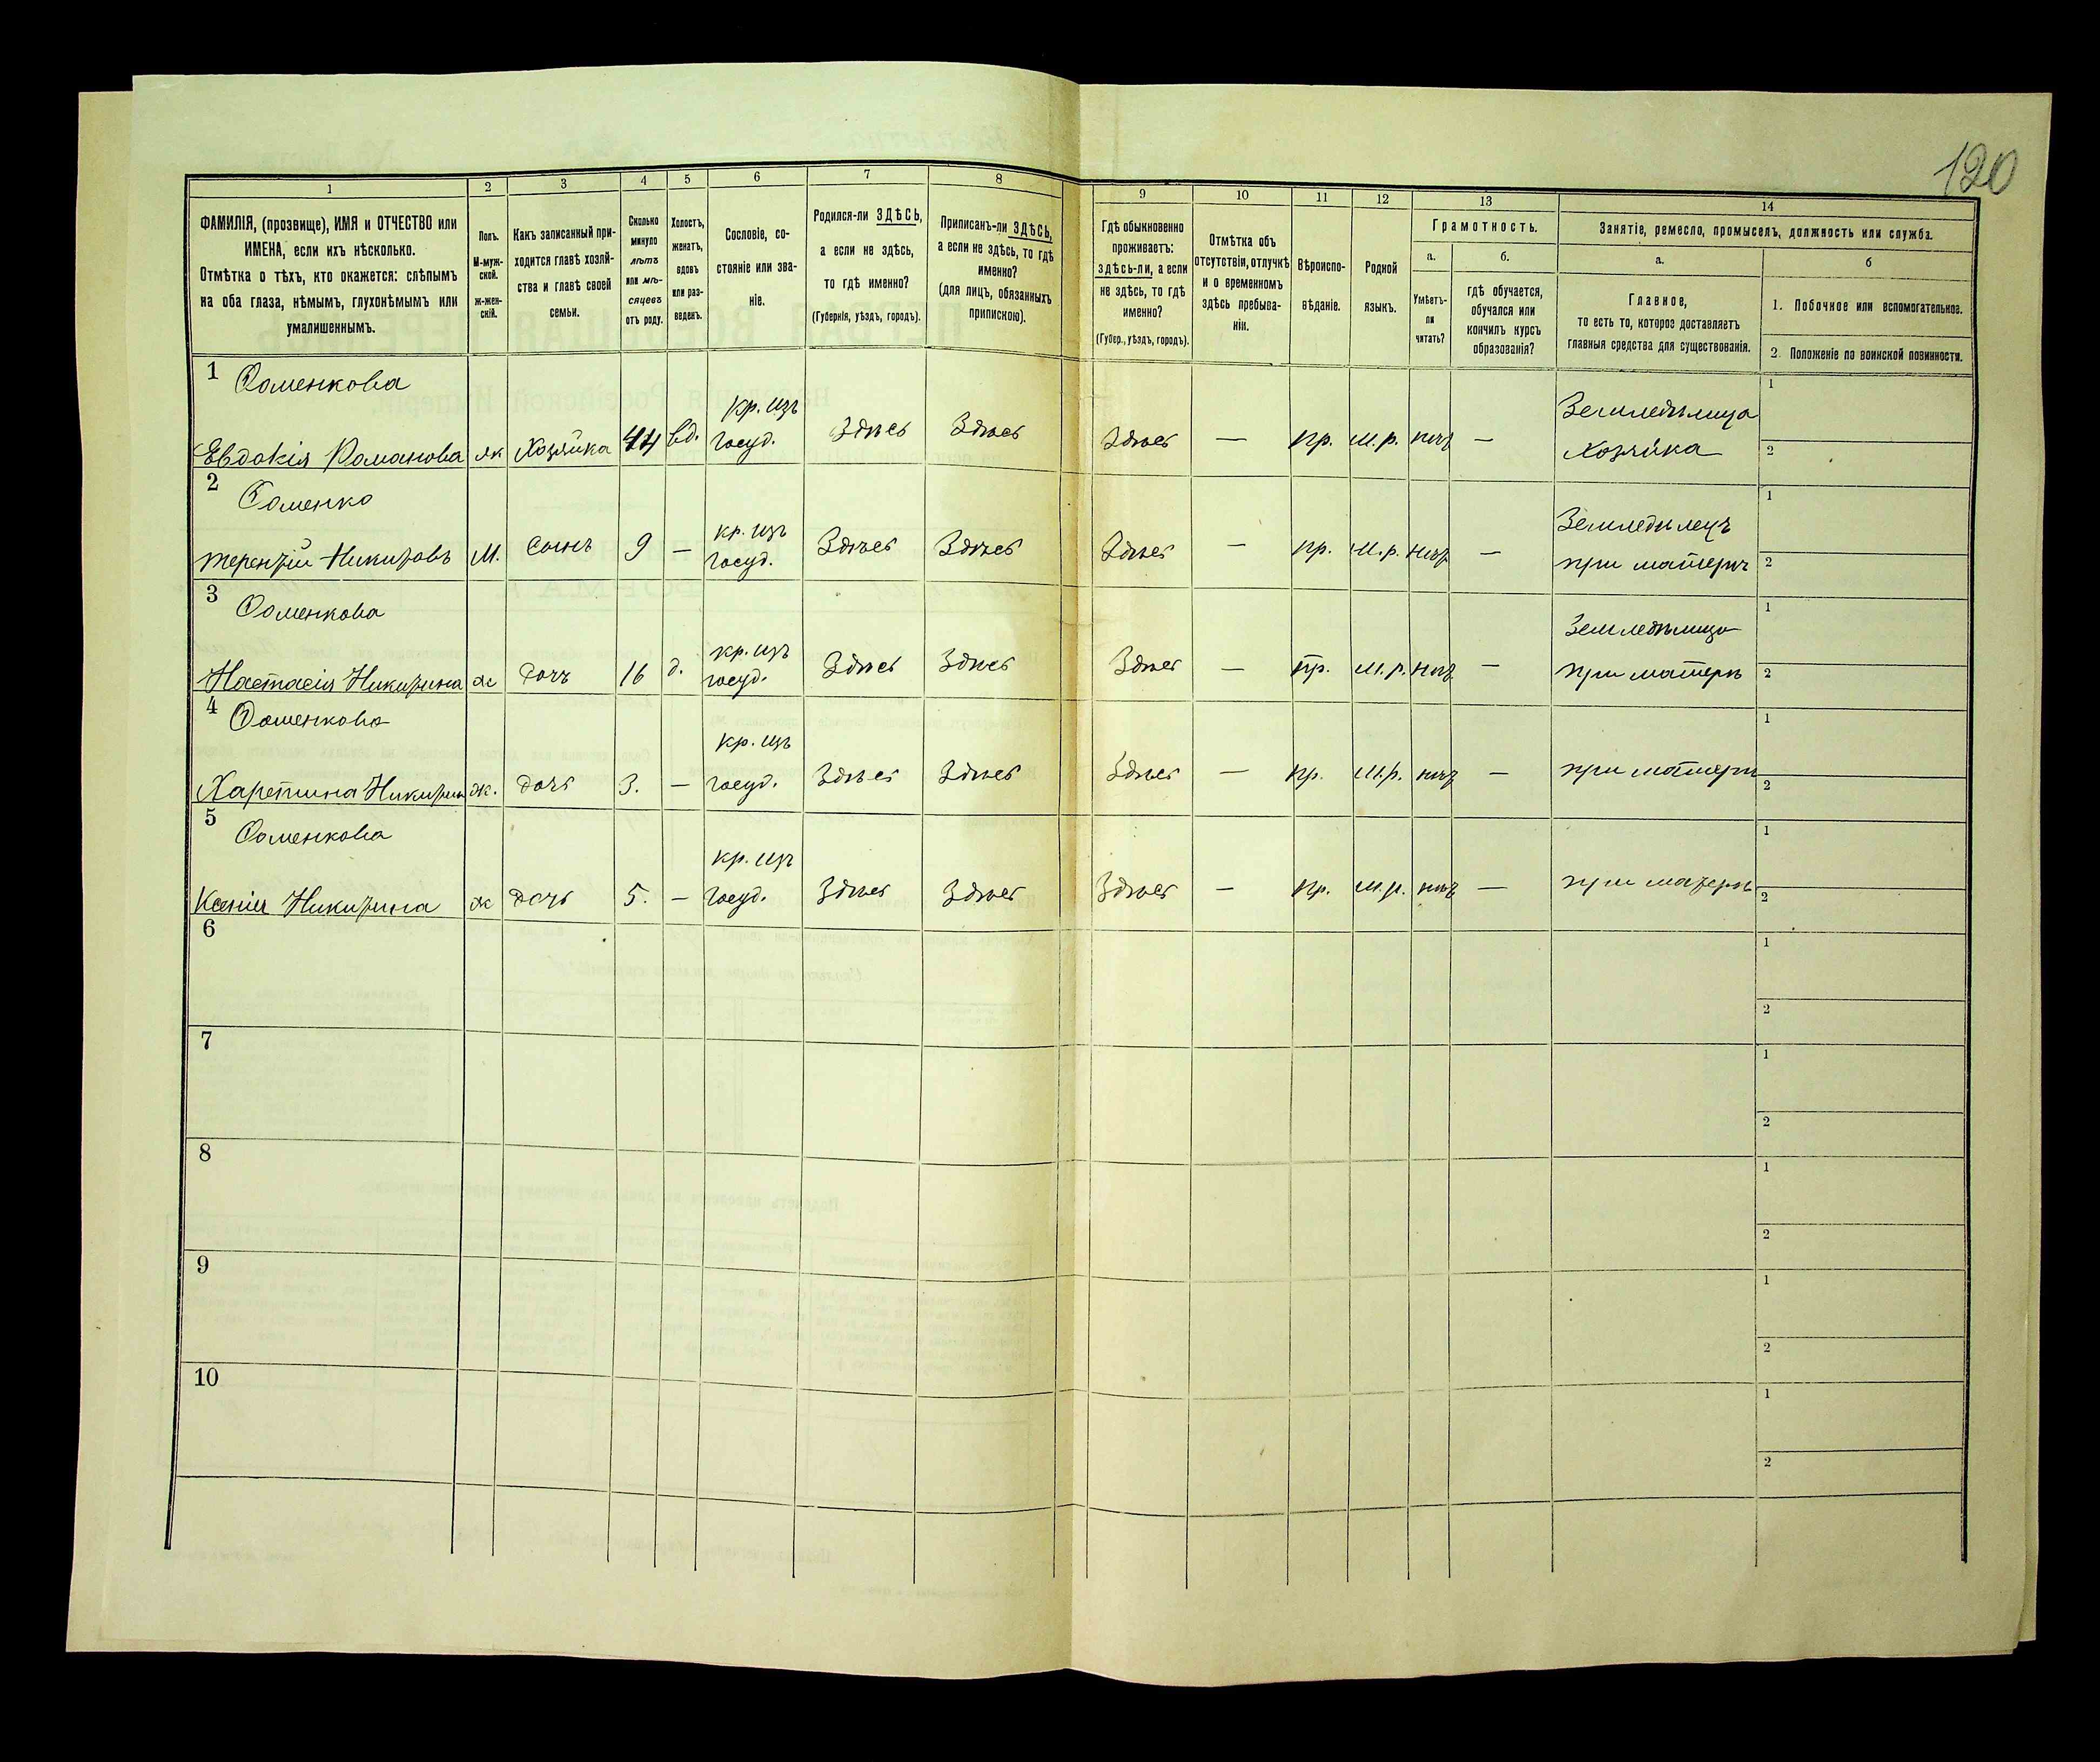 120
1 2 3 4 5 6 7 8 9 10 11 12 13 14
ФАМИЛІЯ, (прозвище), ИМЯ и ОТЧЕСТВО или
ИМЕНА, если ихъ нѣсколько.
Отмѣтка о тѣхъ, кто окажется: слѣпымъ
на оба глаза, нѣмымъ, глухонѣмымъ или
умалишеннымъ.
Полъ.
М-муж-
ской.
ж-жен-
скій.
Какъ записанный при-
ходится главѣ хозяй-
ства и главѣ своей
семьи.
Сколько
минуло
лѣтъ
или мѣ-
сяцевъ
отъ роду.
Холостъ,
женатъ,
вдовъ
или раз-
веденъ.
Сословіе, со-
стояніе или зва-
ніе.
Родился-ли ЗДѢСЬ,
а если не здѣсь,
то гдѣ именно?
(Губернія, уѣздъ, городъ).
Приписанъ-ли ЗДѢСЬ,
а если не здѣсь, то гдѣ
именно?
(для лицъ, обязанныхъ
припискою).
Гдѣ обыкновенно
проживаетъ:
здѣсь-ли, а если
не здѣсь, то гдѣ
именно?
(Губер., уѣздъ, городъ).
Отмѣтка объ
отсутствіи, отлучкѣ
и о временномъ
здѣсь пребыва-
ніи.
Вѣроиспо-
вѣданіе.
Родной
языкъ.
Грамотность.
а.
Умѣетъ-
ли
читать?
б.
гдѣ обучается,
обучался или
кончилъ курсъ
образованія?
Занятіе, ремесло, промыселъ, должность или служба.
а.
Главное,
то есть то, которое доставляетъ
главныя средства для существованія.
б
1. Побочное или вспомогательное.
2. Положеніе по воинской повинности.
1 Ѳоменкова кр. изъ Земледѣлица 1
Евдокія Романова ж Хозяйка 44 вд. госуд. Здѣсь Здѣсь Здѣсь — пр. м.р. нѣтъ — хозяйка 2
2 Ѳоменко кр. изъ Земледѣлецъ 1
Терентій Никитовъ М. Сынъ 9 — госуд. Здѣсь Здѣсь Здѣсь — пр. м.р. нѣтъ — при матери 2
3 Ѳоменкова кр. изъ Земледѣлица 1
Настасія Никитина ж дочь 16 д. госуд. Здѣсь Здѣсь Здѣсь — пр. м.р. нѣтъ — при матери 2
4 Ѳоменкова кр. изъ 1
Харетина Никитин ж. дочь 3. — госуд. Здѣсь Здѣсь Здѣсь — пр. м.р. нѣтъ — при матери 2
5 Ѳоменкова кр. изъ 1
Ксенія Никитина ж дочь 5. — госуд. Здѣсь Здѣсь Здѣсь — пр. м.р. нѣтъ — при матери 2
6 1
2
7 1
2
8 1
2
9 1
2
10 1
2